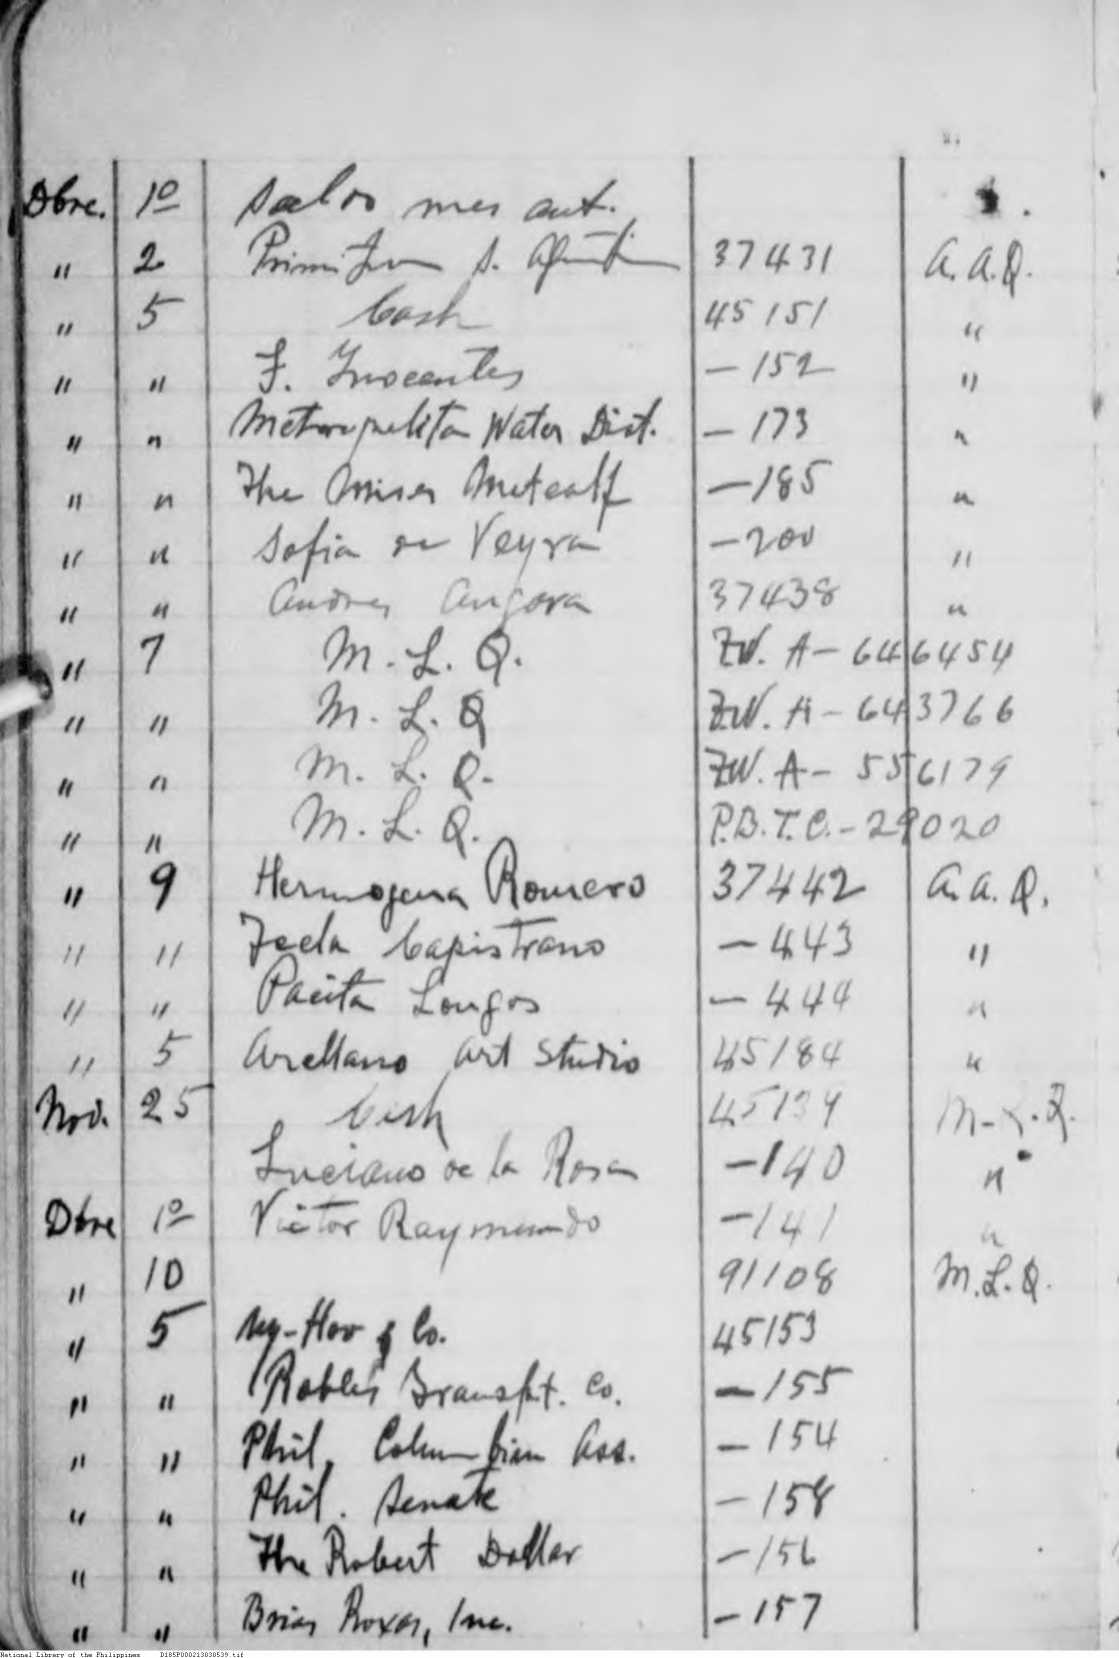 Dbre. 1º Saldo mes ant.
" 2 Primitivo S. 37431 A. A. Q.
" 5 Cash 45151 "
" " F. Inocentes — 152 "
" " Metropolitan Water Dist. — 173 "
" " The Misses Metcalf — 185 "
" " Sofia de Veyra — 200 "
" " Andres Angora 37438 "
" 7 M. L. Q. ZW. A — 646454
" " M. L. Q ZW. A — 643766
" " M. L. Q. ZW. A — 556179
" " M. L. Q. P.B.T.C. — 29020
" 9 Hermogena Romero 37442 A. A. Q.
" " Tecla Capistrano — 443 "
" " Pacita Longos — 444 "
" 5 Arellano Art Studio 45184 "
Nov. 25 Cash 45139 M. L. Q.
Luciano de la Rosa — 140 "
Dbre 1º Victor Raymundo — 141 "
" 10 91108 M. L. Q.
" 5 Uy-Hoo & Co. 45153
" " Robles Transpt. Co. — 155
" " Phil. Columbian Ass. — 154
" " Phil. Senate — 158
" " The Robert Dollar — 156
" " Brias Roxas, Inc. — 157
National Library of the Philippines D185P000213830539.tif